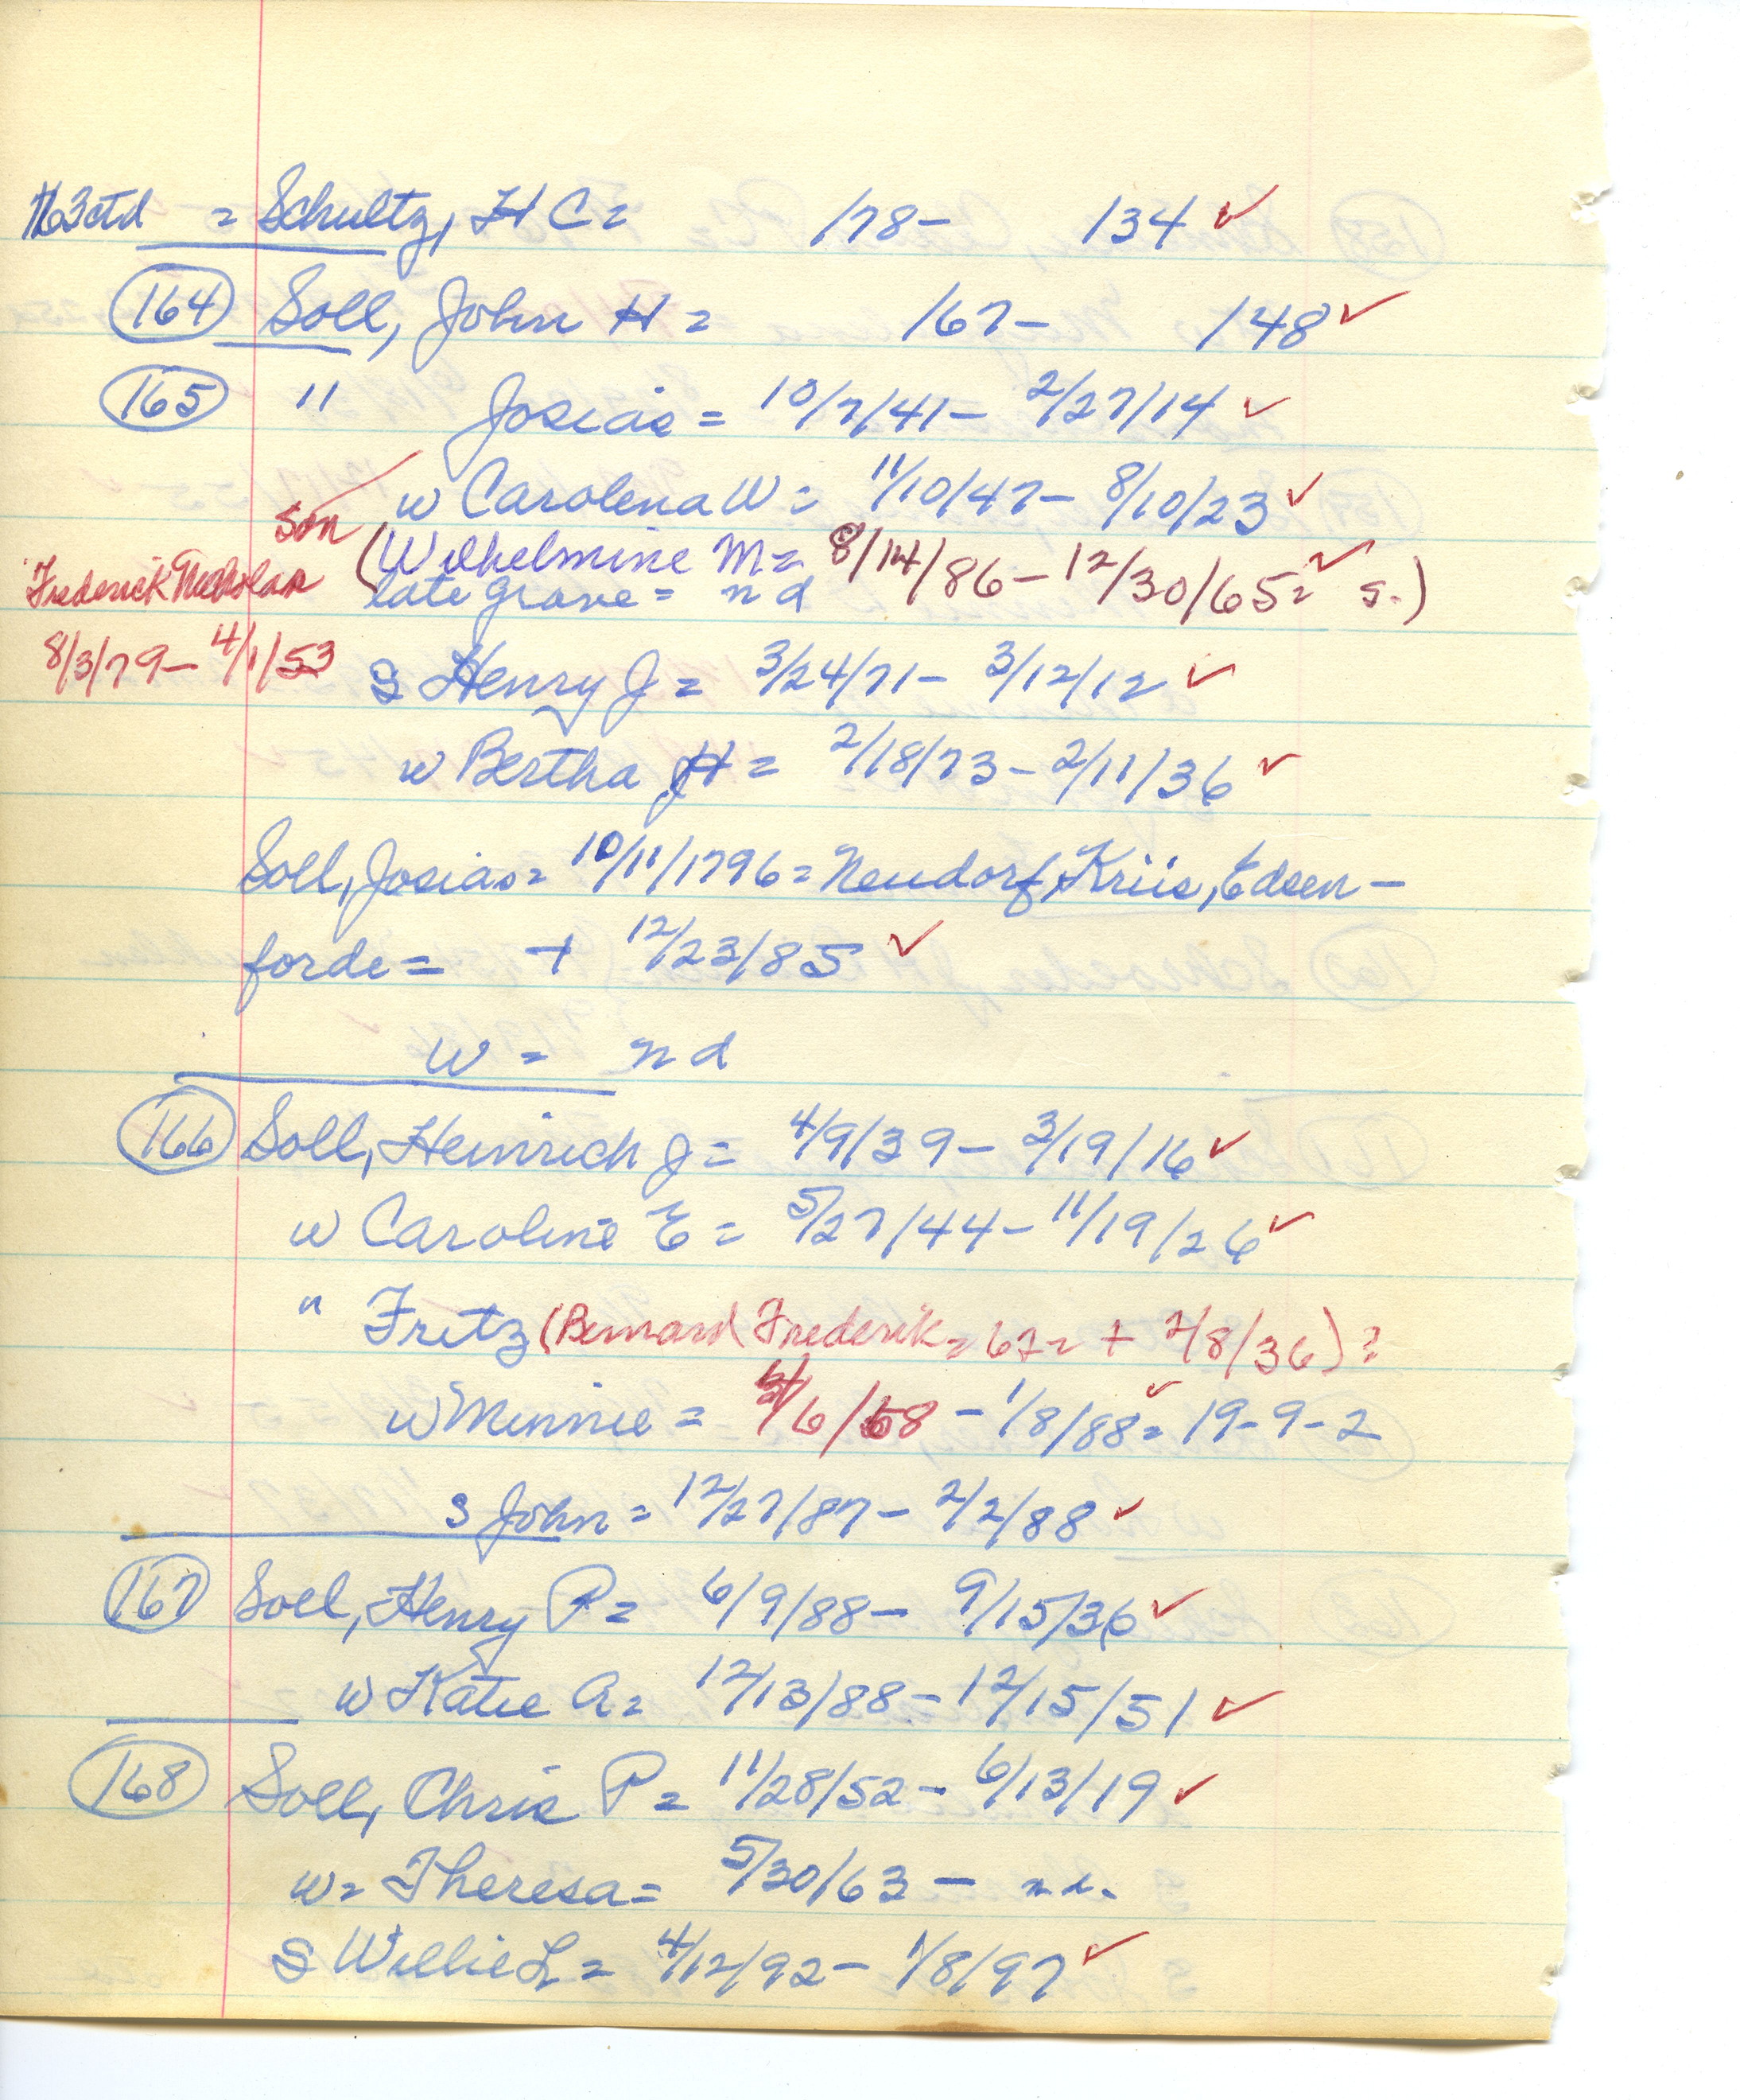 163ctd = Schultz, H C = /78 - /34 ✓
164 Soll, John H = /67 - /48 ✓
165 " Josias = 10/7/41 - 2/27/14 ✓
w Carolena W = 11/10/47 - 8/10/23 ✓
son (Wilhelmine M = 8/14/86 - 12/30/65 = ✓ s.)
Frederick Nicholas late grave = nd
8/3/79 - 4/1/53 s Henry J = 3/24/71 - 3/12/12 ✓
w Bertha H = 2/18/73 - 2/11/36 ✓
Soll, Josias = 10/11/1796 = Neudorf, Kriis, Edsen-
forde = + 12/23/85 ✓
w = nd
166 Soll, Heinrich J = 4/9/39 - 3/19/16 ✓
w Caroline E = 5/27/44 - 11/19/26 ✓
" Fritz (Bernard Frederick = 67 = + 2/8/36)?
w Minnie = 4/6/68 - 1/8/88 = ✓ 19-9-2
s John = 12/27/87 - 2/2/88 ✓
167 Soll, Henry P = 6/9/88 - 9/15/36 ✓
w Katie A = 12/13/88 - 12/15/51 ✓
168 Soll, Chris P = 11/28/52 - 6/13/19 ✓
w = Theresa = 5/30/63 - n.d.
S Willie L = 4/12/92 - 1/8/97 ✓